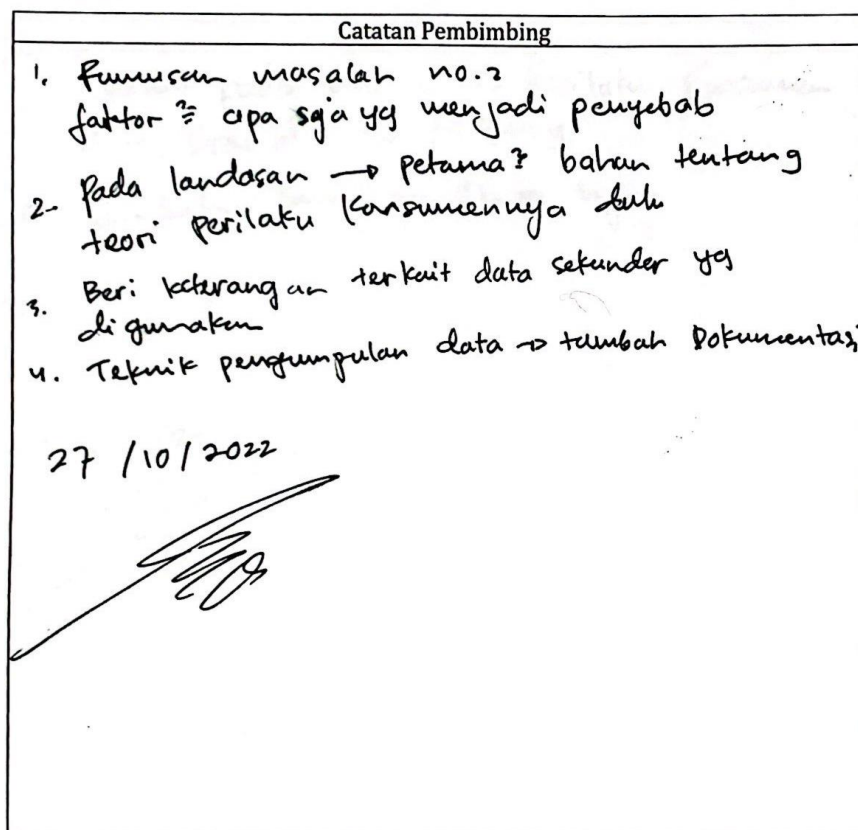 Catatan Pembimbing
1. Rumusan masalah no.2
faktor² apa sja yg menjadi penyebab
2. Pada landasan → petama² bahan tentang
teori perilaku konsumennya dulu
3. Beri keterangan terkait data sekunder yg
digunakan
4. Teknik pengumpulan data → tambah Dokumentasi
27/10/2022